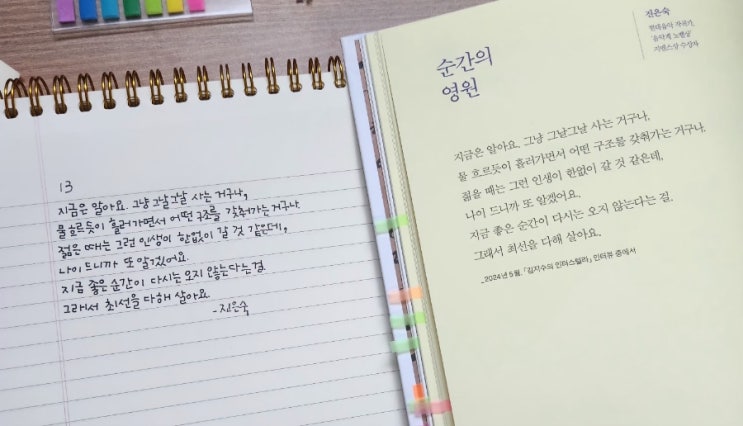 13
지금은 알아요. 그냥 그날그날 사는 거구나,
물 흐르듯이 흘러가면서 어떤 구조를 갖춰가는 거구나.
젊은 때는 그런 인생이 한없이 갈 것 같은데,
나이 드니까 또 알겠어요.
지금 좋은 순간이 다시는 오지 않는다는 걸.
그래서 최선을 다해 살아요.
-진은숙
순간의
영원
진은숙
현대음악 작곡가,
'음악계 노벨상'
지멘스상 수상자
지금은 알아요. 그냥 그날그날 사는 거구나,
물 흐르듯이 흘러가면서 어떤 구조를 갖춰가는 거구나.
젊을 때는 그런 인생이 한없이 갈 것 같은데,
나이 드니까 또 알겠어요.
지금 좋은 순간이 다시는 오지 않는다는 걸.
그래서 최선을 다해 살아요.
_2024년 5월, 「김지수의 인터스텔라」 인터뷰 중에서